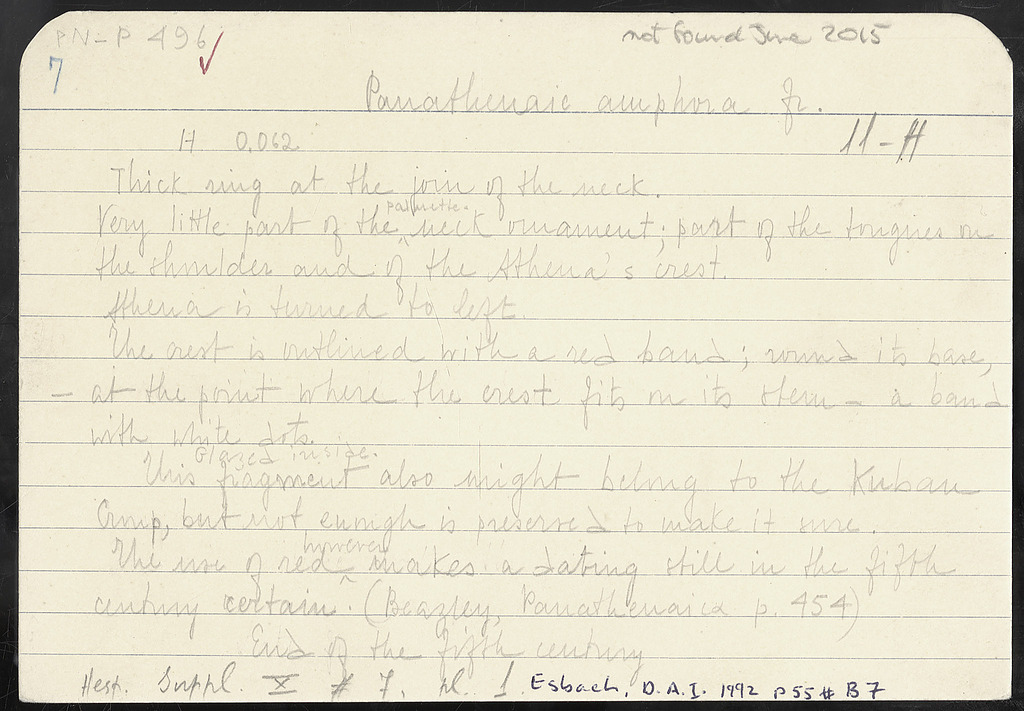 PN-P 496 ✓
not found June 2015
7
Panathenaic amphora fr.
H 0,062
11-H
Thick ring at the join of the neck.
palmette.
Very little part of the ^ neck ornament; part of the tongues on
the shoulder and of the Athena's crest.
Athena is turned to left.
The crest is outlined with a red band; round its base,
– at the point where the crest fits on its stem – a band
with white dots.
Glazed inside.
This fragment also might belong to the Kuban
Group, but not enough is preserved to make it sure.
however
The use of red ^ makes a dating still in the fifth
century certain. (Beazley, Panathenaica p. 454)
End of the fifth century
Hesp. Suppl. X # 7, pl. 1 Esbach, D.A.I. 1992 p 55 # B7